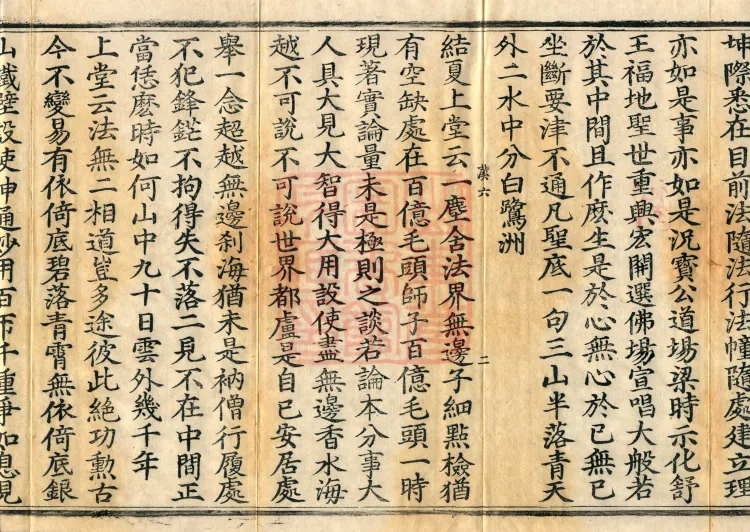 坤際悉在目前法隨法行法幢隨處建立理
亦如是事亦如是況寶公道場梁時示化舒
王福地聖世重興宏開選佛場宣唱大般若
於其中間且作麼生是於心無心於己無己
坐斷要津不通凡聖底一句三山半落青天
外二水中分白鷺洲
漢六
二
結夏上堂云一塵含法界無邊子細點檢猶
有空缺處在百億毛頭師子百億毛頭一時
現著實論量未是極則之談若論本分事大
人具大見大智得大用設使盡無邊香水海
越不可說不可說世界都盧是自己安居處
舉一念超越無邊剎海猶未是衲僧行履處
不犯鋒鋩不拘得失不落二見不在中間正
當恁麼時如何山中九十日雲外幾千年
上堂云法無二相道豈多途彼此絕功勲古
今不變易有依倚底碧落青霄無依倚底銀
山鐵壁設使神通妙用百帀千重爭如息見